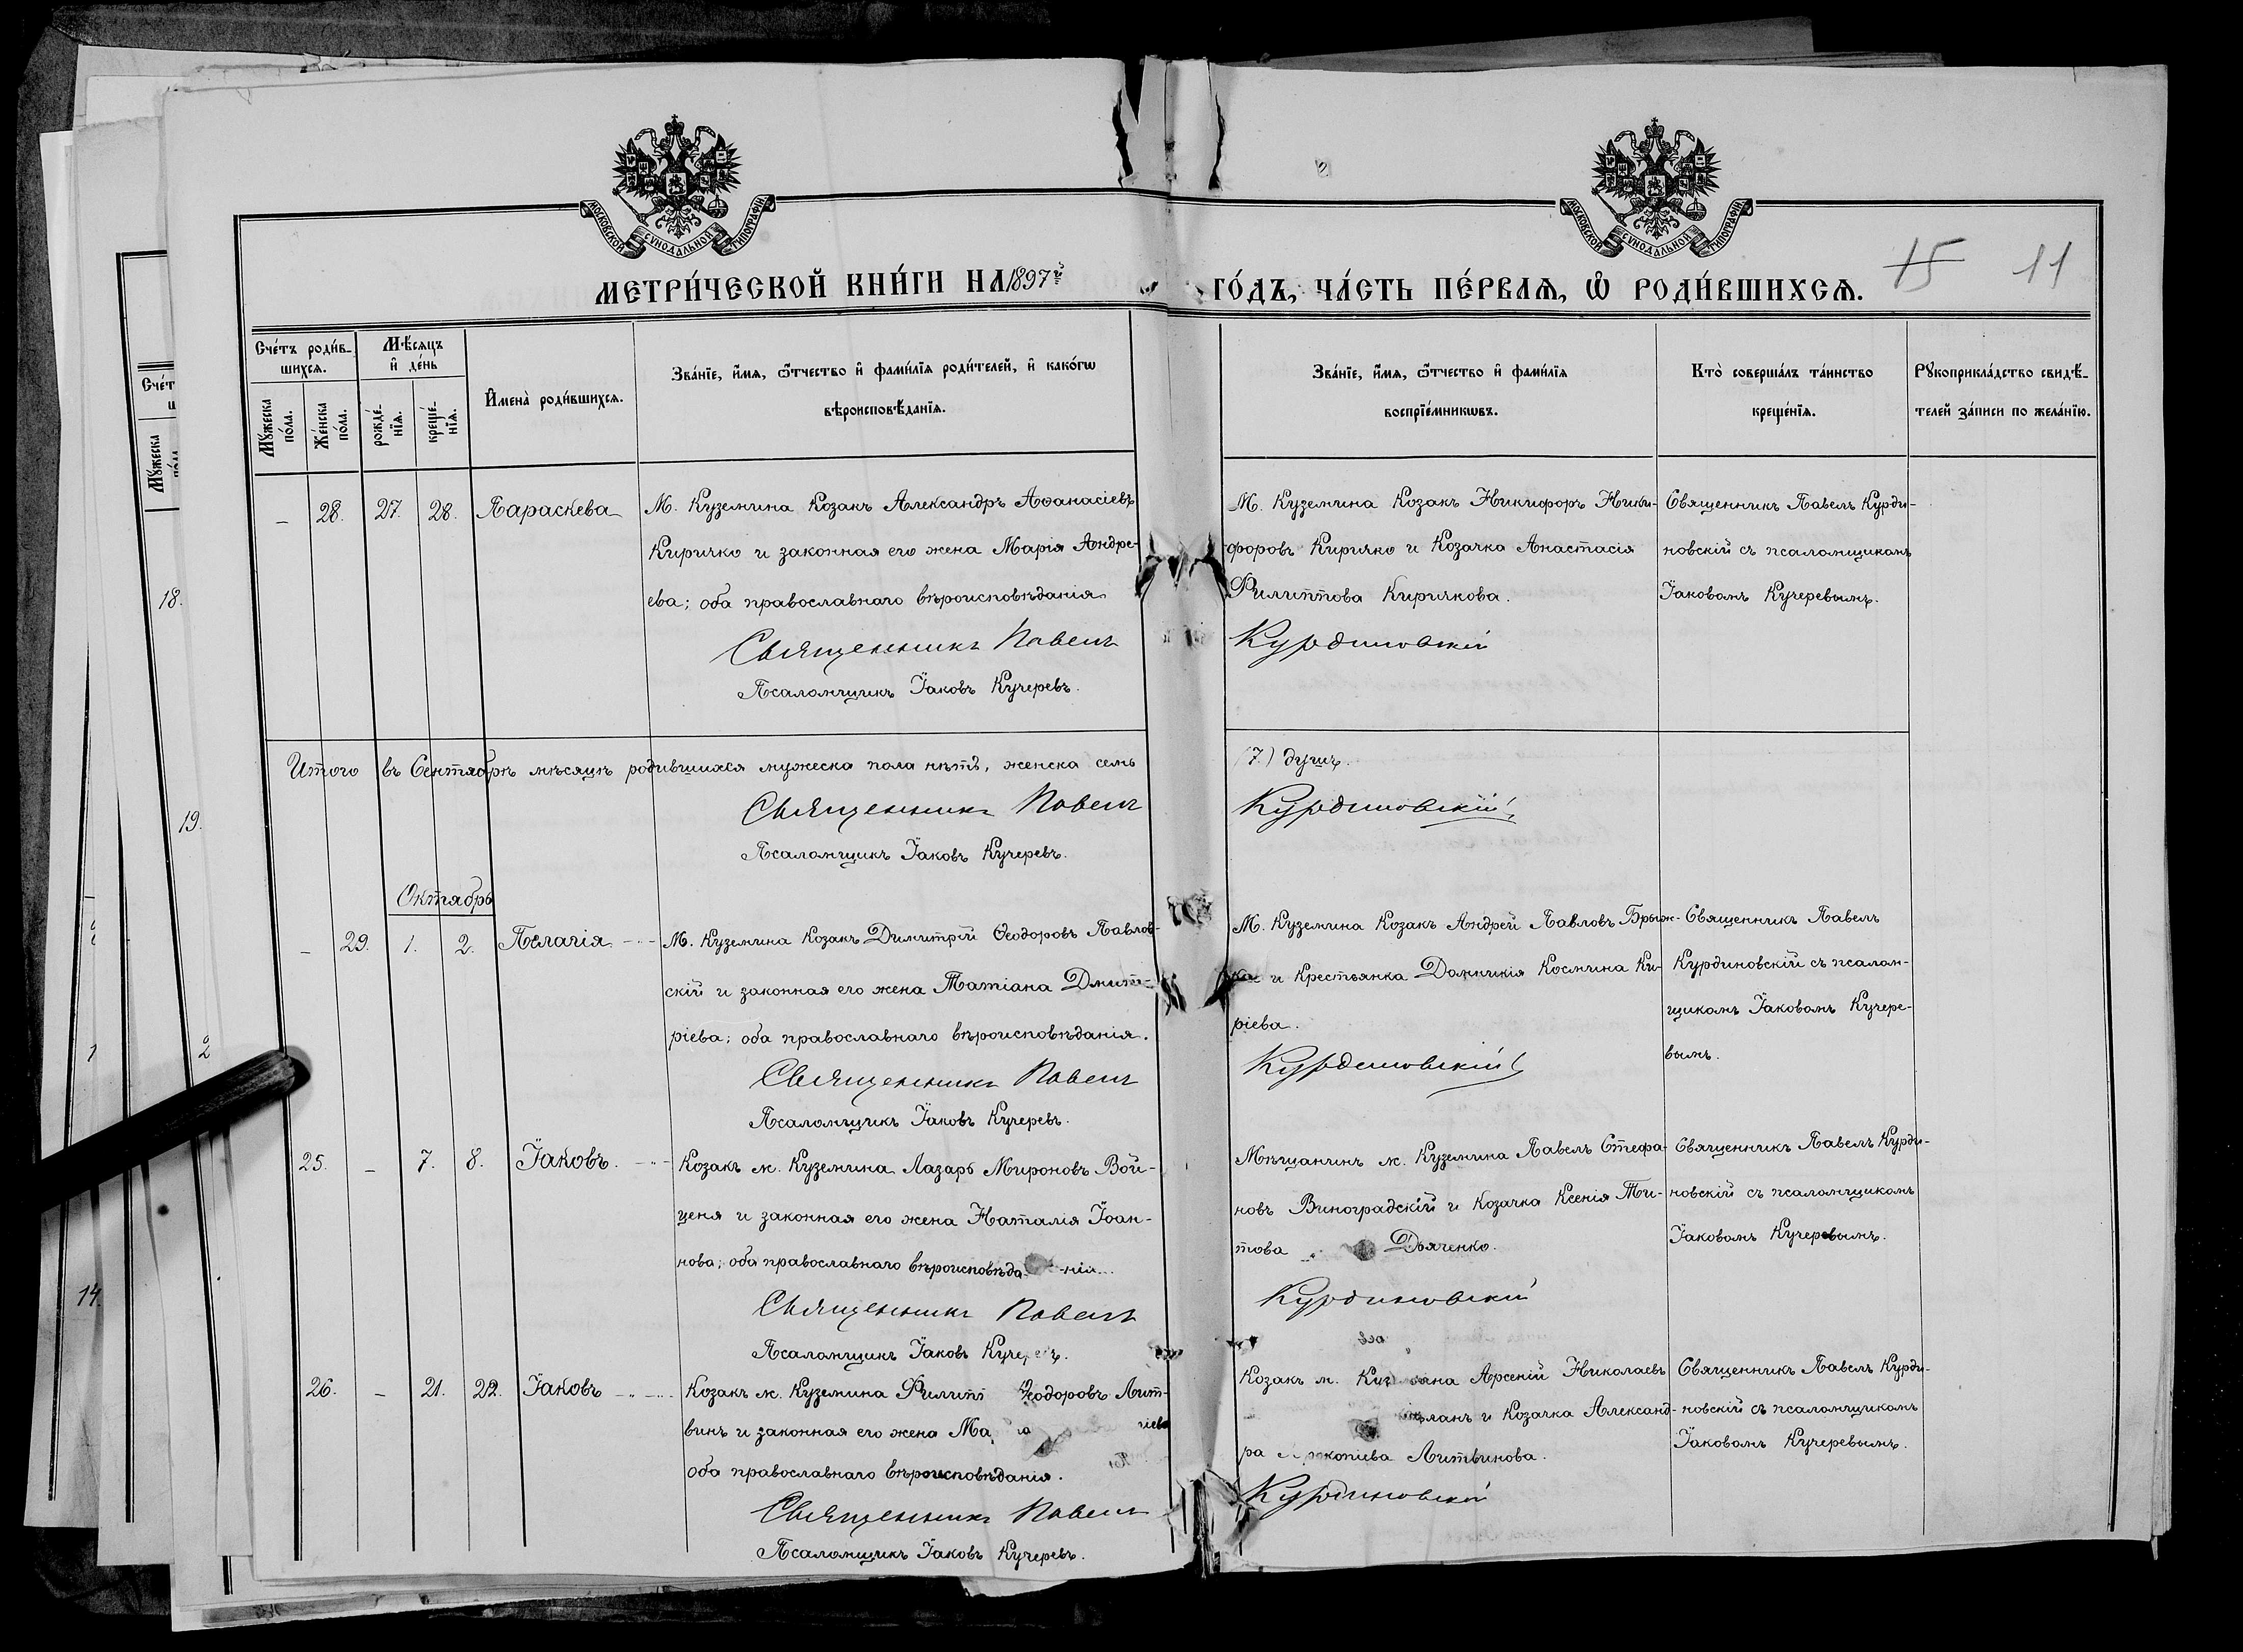 МОСКОВСКОЙ СѴНОДАЛЬНОЙ ТИПОГРАФІИ
МОСКОВСКОЙ СѴНОДАЛЬНОЙ ТИПОГРАФІИ
МЕТРИ́ЧЕСКОЙ КНИ́ГИ НА 1897й
ГО́ДЪ, ЧА́СТЬ ПЕ́РВАЯ, Ѡ҆ РОДИ́ВШИХСЯ.
15 11
Сче́тъ роди́в-
шихся.
Мꙋжеска
по́ла.
Же́нска
по́ла.
Мѣ́сяцъ
и҆ де́нь
рожде́-
нїѧ.
креще́-
нїѧ.
И҆мена̀ роди́вшихся.
Зва́нїе, и҆́мя, ѻ҆́тчество и҆ фами́лїя роди́телей, и҆ како́гѡ
вѣроисповѣ́данїя.
Зва́нїе, и҆́мя, ѻ҆́тчество и҆ фами́лїя
воспрїе́мникѡвъ.
Кто̀ соверша́лъ та́инство
креще́нїя.
Рꙋкоприкла́дство свидѣ́-
телей за́писи по жела́нїю.
– 28. 27. 28. Параскева
М. Куземина Козакъ Александръ Аѳанасіевъ
Киричко и законная его жена Марія Андре-
ева; оба православнаго вѣроисповѣданія
Священникъ Павелъ
Псаломщикъ Іаковъ Кучеревъ.
М. Куземина Козакъ Никифоръ Ники-
форовъ Киричко и Козачка Анастасія
Филиппова Киричкова.
Курдиновскій
Священникъ Павелъ Курди-
новскій съ псаломщикомъ
Іаковомъ Кучеревымъ.
Итого въ Сентябрѣ мѣсяцѣ родившихся мужеска пола нѣтъ, женска семь
(7) душъ.
Священникъ Павелъ
Курдиновскій
Псаломщикъ Іаковъ Кучеревъ.
Октябрь
– 29. 1. 2. Пелагія
М. Куземина Козакъ Димитрій Ѳеодоровъ Павлов-
скій и законная его жена Татіана Дмит-
ріева; оба православнаго вѣроисповѣданія.
Священникъ Павелъ
Псаломщикъ Іаковъ Кучеревъ.
М. Куземина Козакъ Андрей Павловъ Брыж-
ка и Крестьянка Домникія Космина Ки-
ріева.
Курдиновскій
Священникъ Павелъ
Курдиновскій съ псалом-
щикомъ Іаковомъ Кучере-
вымъ.
25. – 7. 8. Іаковъ.
Козакъ м. Куземина Лазарь Мироновъ Вой-
ценя и законная его жена Наталія Іоан-
нова; оба православнаго вѣроисповѣда-нія.
Священникъ Павелъ
Псаломщикъ Іаковъ Кучеревъ.
Мѣщанинъ м. Куземина Павелъ Стефа-
новъ Виноградскій и Козачка Ксенія Ти-
това Дьяченко.
Курдиновскій
Священникъ Павелъ Курди-
новскій съ псаломщикомъ
Іаковомъ Кучеревымъ.
26. – 21. 22. Іаковъ
Козакъ м. Куземина Филипп Ѳеодоровъ Лит-
винъ и законная его жена
оба православнаго вѣроисповѣданія.
Священникъ Павелъ
Псаломщикъ Іаковъ Кучеревъ.
Козакъ м. Арсеній Николаевъ
и Козачка Александ-
ра Литвинова.
Курдиновскій
Священникъ Павелъ Курди-
новскій съ псаломщикомъ
Іаковомъ Кучеревымъ.
Сче́т
Мꙋжеска
18.
19.
2
1
14.